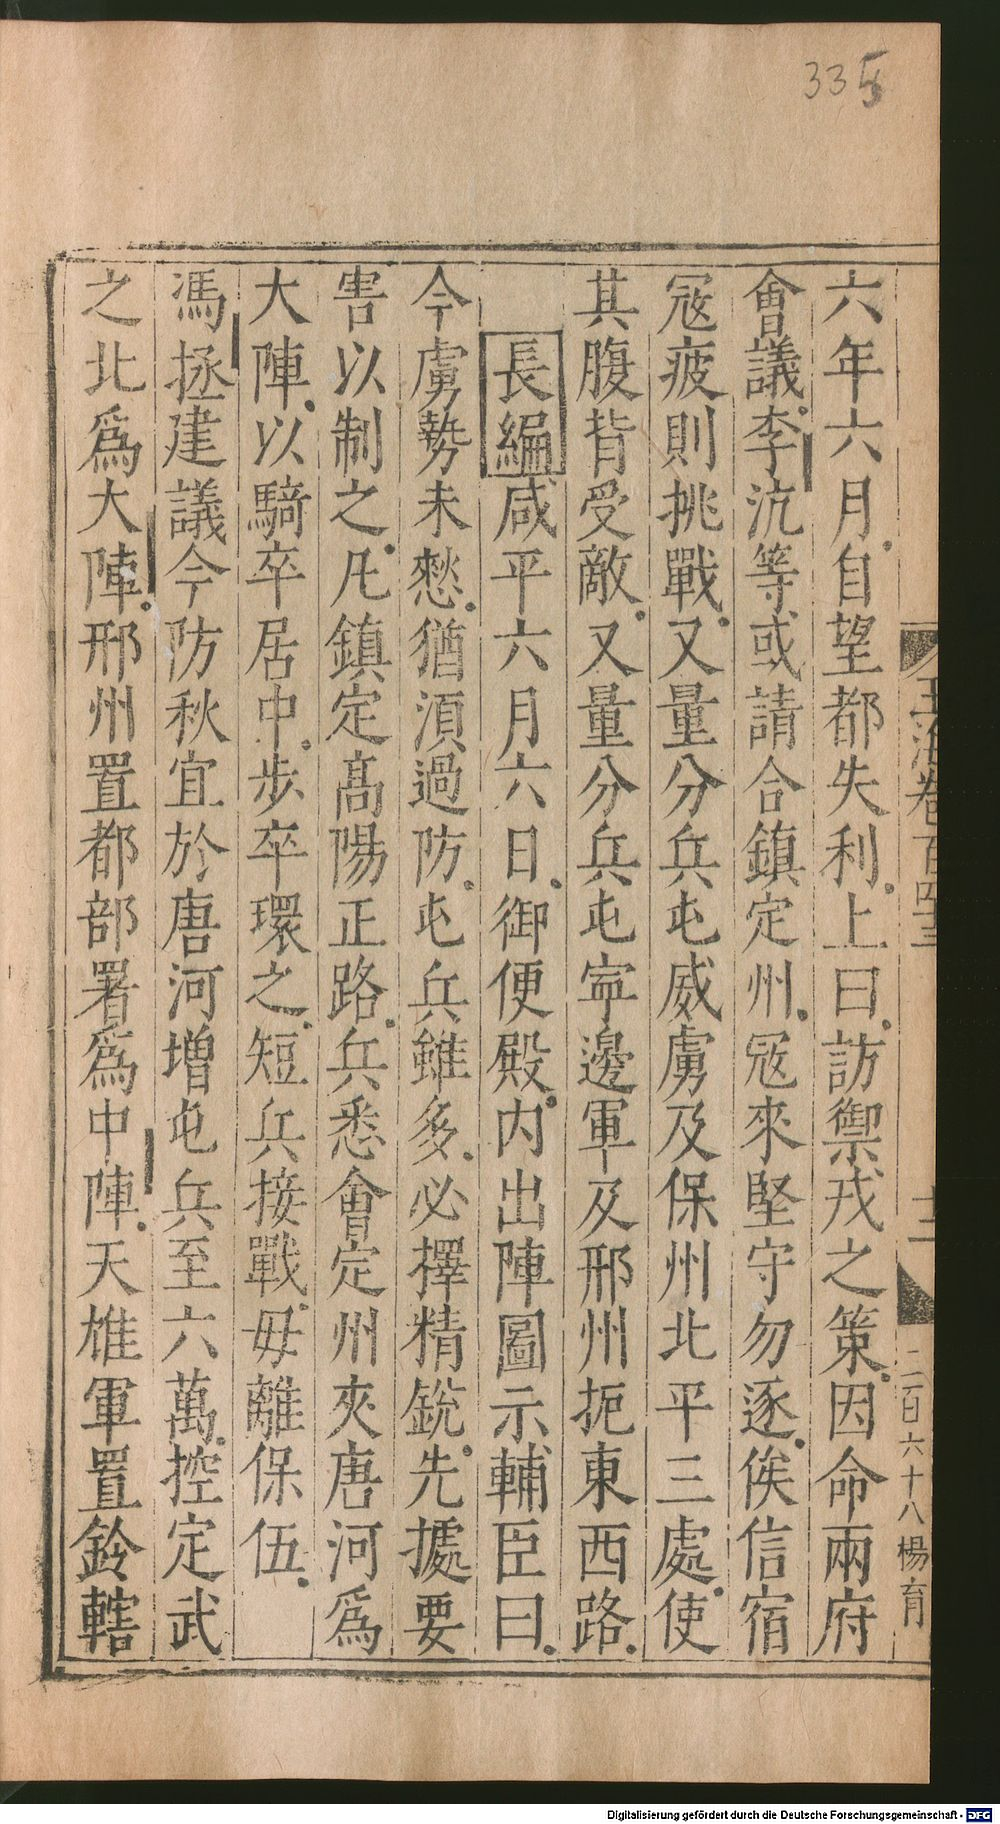 335
六年六月自望都失利上曰訪禦戎之策因命兩府
會議李沆等或請合鎮定州冦來堅守勿逐俟信宿
冦疲則挑戰又量分兵屯威虜及保州北平三處使
其腹背受敵又量分兵屯寧邊軍及邢州扼東西路
長編咸平六月六日御便殿内出陣圖示輔臣曰
今虜勢未憖猶湏過防屯兵雖多必擇精銳先據要
害以制之凡鎮定髙陽正路兵悉會定州夾唐河爲
大陣以騎卒居中步卒環之短兵接戰毋離保伍
馮拯建議今防秋宜於唐河增屯兵至六萬控定武
之北爲大陣邢州置都部署爲中陣天雄軍置鈴轄
玉海卷百四三
十二
二百六十八楊育
Digitalisierung gefördert durch die Deutsche Forschungsgemeinschaft - DFG